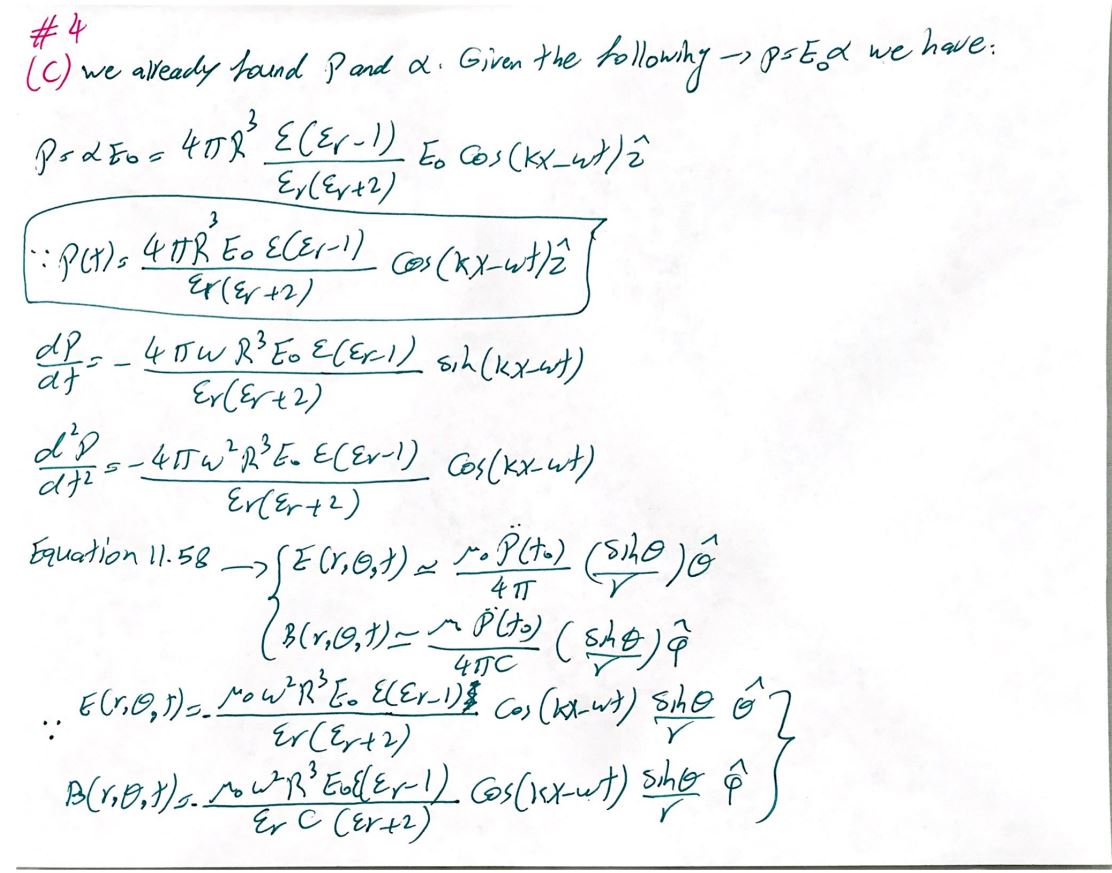 #4
(C) we already found P and α. Given the following → p=E₀α we have:
P=αE₀ = 4πR³ ε(εr-1)/εr(εr+2) E₀ Cos(kx-ωt)ẑ
∵ P(t)= 4πR³E₀ε(εr-1)/εr(εr+2) Cos(kx-ωt)ẑ
dP/dt = - 4πωR³E₀ε(εr-1)/εr(εr+2) sin(kx-ωt)
d²P/dt² = - 4πω²R³E₀ε(εr-1)/εr(εr+2) Cos(kx-ωt)
Equation 11.58 → { E(r,θ,t) ≃ μ₀P̈(t₀)/4π (sinθ/r)θ̂
B(r,θ,t) ≃ μP̈(t₀)/4πC (sinθ/r)φ̂
∵ E(r,θ,t)=- μ₀ω²R³E₀ε(εr-1)/εr(εr+2) Cos(kx-ωt) sinθ/r θ̂ }
B(r,θ,t)=- μ₀ω²R³E₀ε(εr-1)/εr C(εr+2) Cos(kx-ωt) sinθ/r φ̂